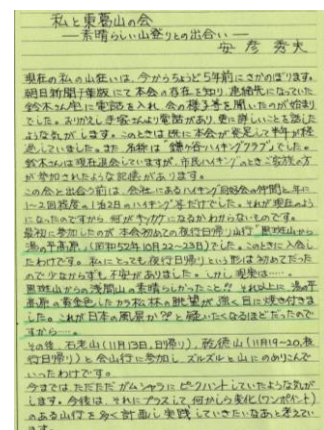 私と東葛山の会
―素晴らしい山登りとの出合い―
安彦秀夫
現在の私の山狂いは、今からちょうど5年前にさかのぼります。
朝日新聞千葉版にて本会の存在を知り、連絡先になっていた
鈴木さん宅に電話を入れ、会の様子等を聞いたのが始まり
でした。おりかえし手塚さんより電話があり、更に詳しいことを話した
ような気がします。このときは既に本会が発足して半年が経
過していました。また、名称は"鎌ヶ谷ハイキングクラブ"でした。
鈴木さんは現在退会していますが、市民ハイキングのときご家族の方
が参加されたような記憶があります。
この会と出合う前は、会社にあるハイキング同好会の仲間と年に
1~2回程度。1泊2日のハイキング等だけでした。それが現在のよう
になったのですから、何がキッカケになるかわからないものです。
最初に参加したのが本会初めての夜行日帰り山行"黒斑山から
湯の平高原"(昭和52年10月22~23日)でした。このときに入会し
たわけです。私にとっても夜行日帰りという形は初めてだった
ので少なからずも不安がありました。しかし現実は……。
黒斑山からの浅間山の素晴らしかったこと!! それ以上に湯の平
高原の黄金色したから松林の眺望が深く目に焼き付きま
した。これが日本の風景か?と疑いたくなるほどだったので
すから……。
その後、石老山(11月13日、日帰り)、乾徳山(11月19~20、夜
行日帰り)と会山行に参加し、ズルズルと山にのめりこんで
いったわけです。
今まではただただガムシャラにピークハントしていたような気が
します。今後は、それにプラスして、何かしら変化(ワンポイント)
のある山行を多く計画し実践していきたいなあと考えてい
ます。